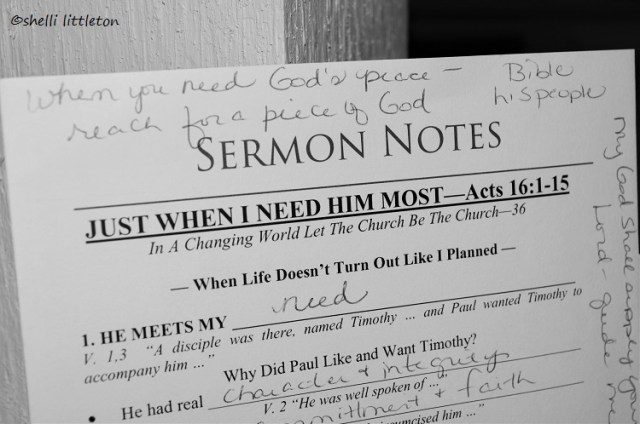 ©shelli littleton
When you need God's peace -
reach for a piece of God
Bible
his people
SERMON NOTES
JUST WHEN I NEED HIM MOST—Acts 16:1-15
In A Changing World Let The Church Be The Church—36
— When Life Doesn't Turn Out Like I Planned —
1. HE MEETS MY need
V. 1,3 "A disciple was there, named Timothy ... and Paul wanted Timothy to
accompany him ..."
Why Did Paul Like and Want Timothy?
• He had real character + integrity
V. 2 "He was well spoken of ..."
commitment + faith
circumcised him ..."
My God shall supply your
Lord - guide me